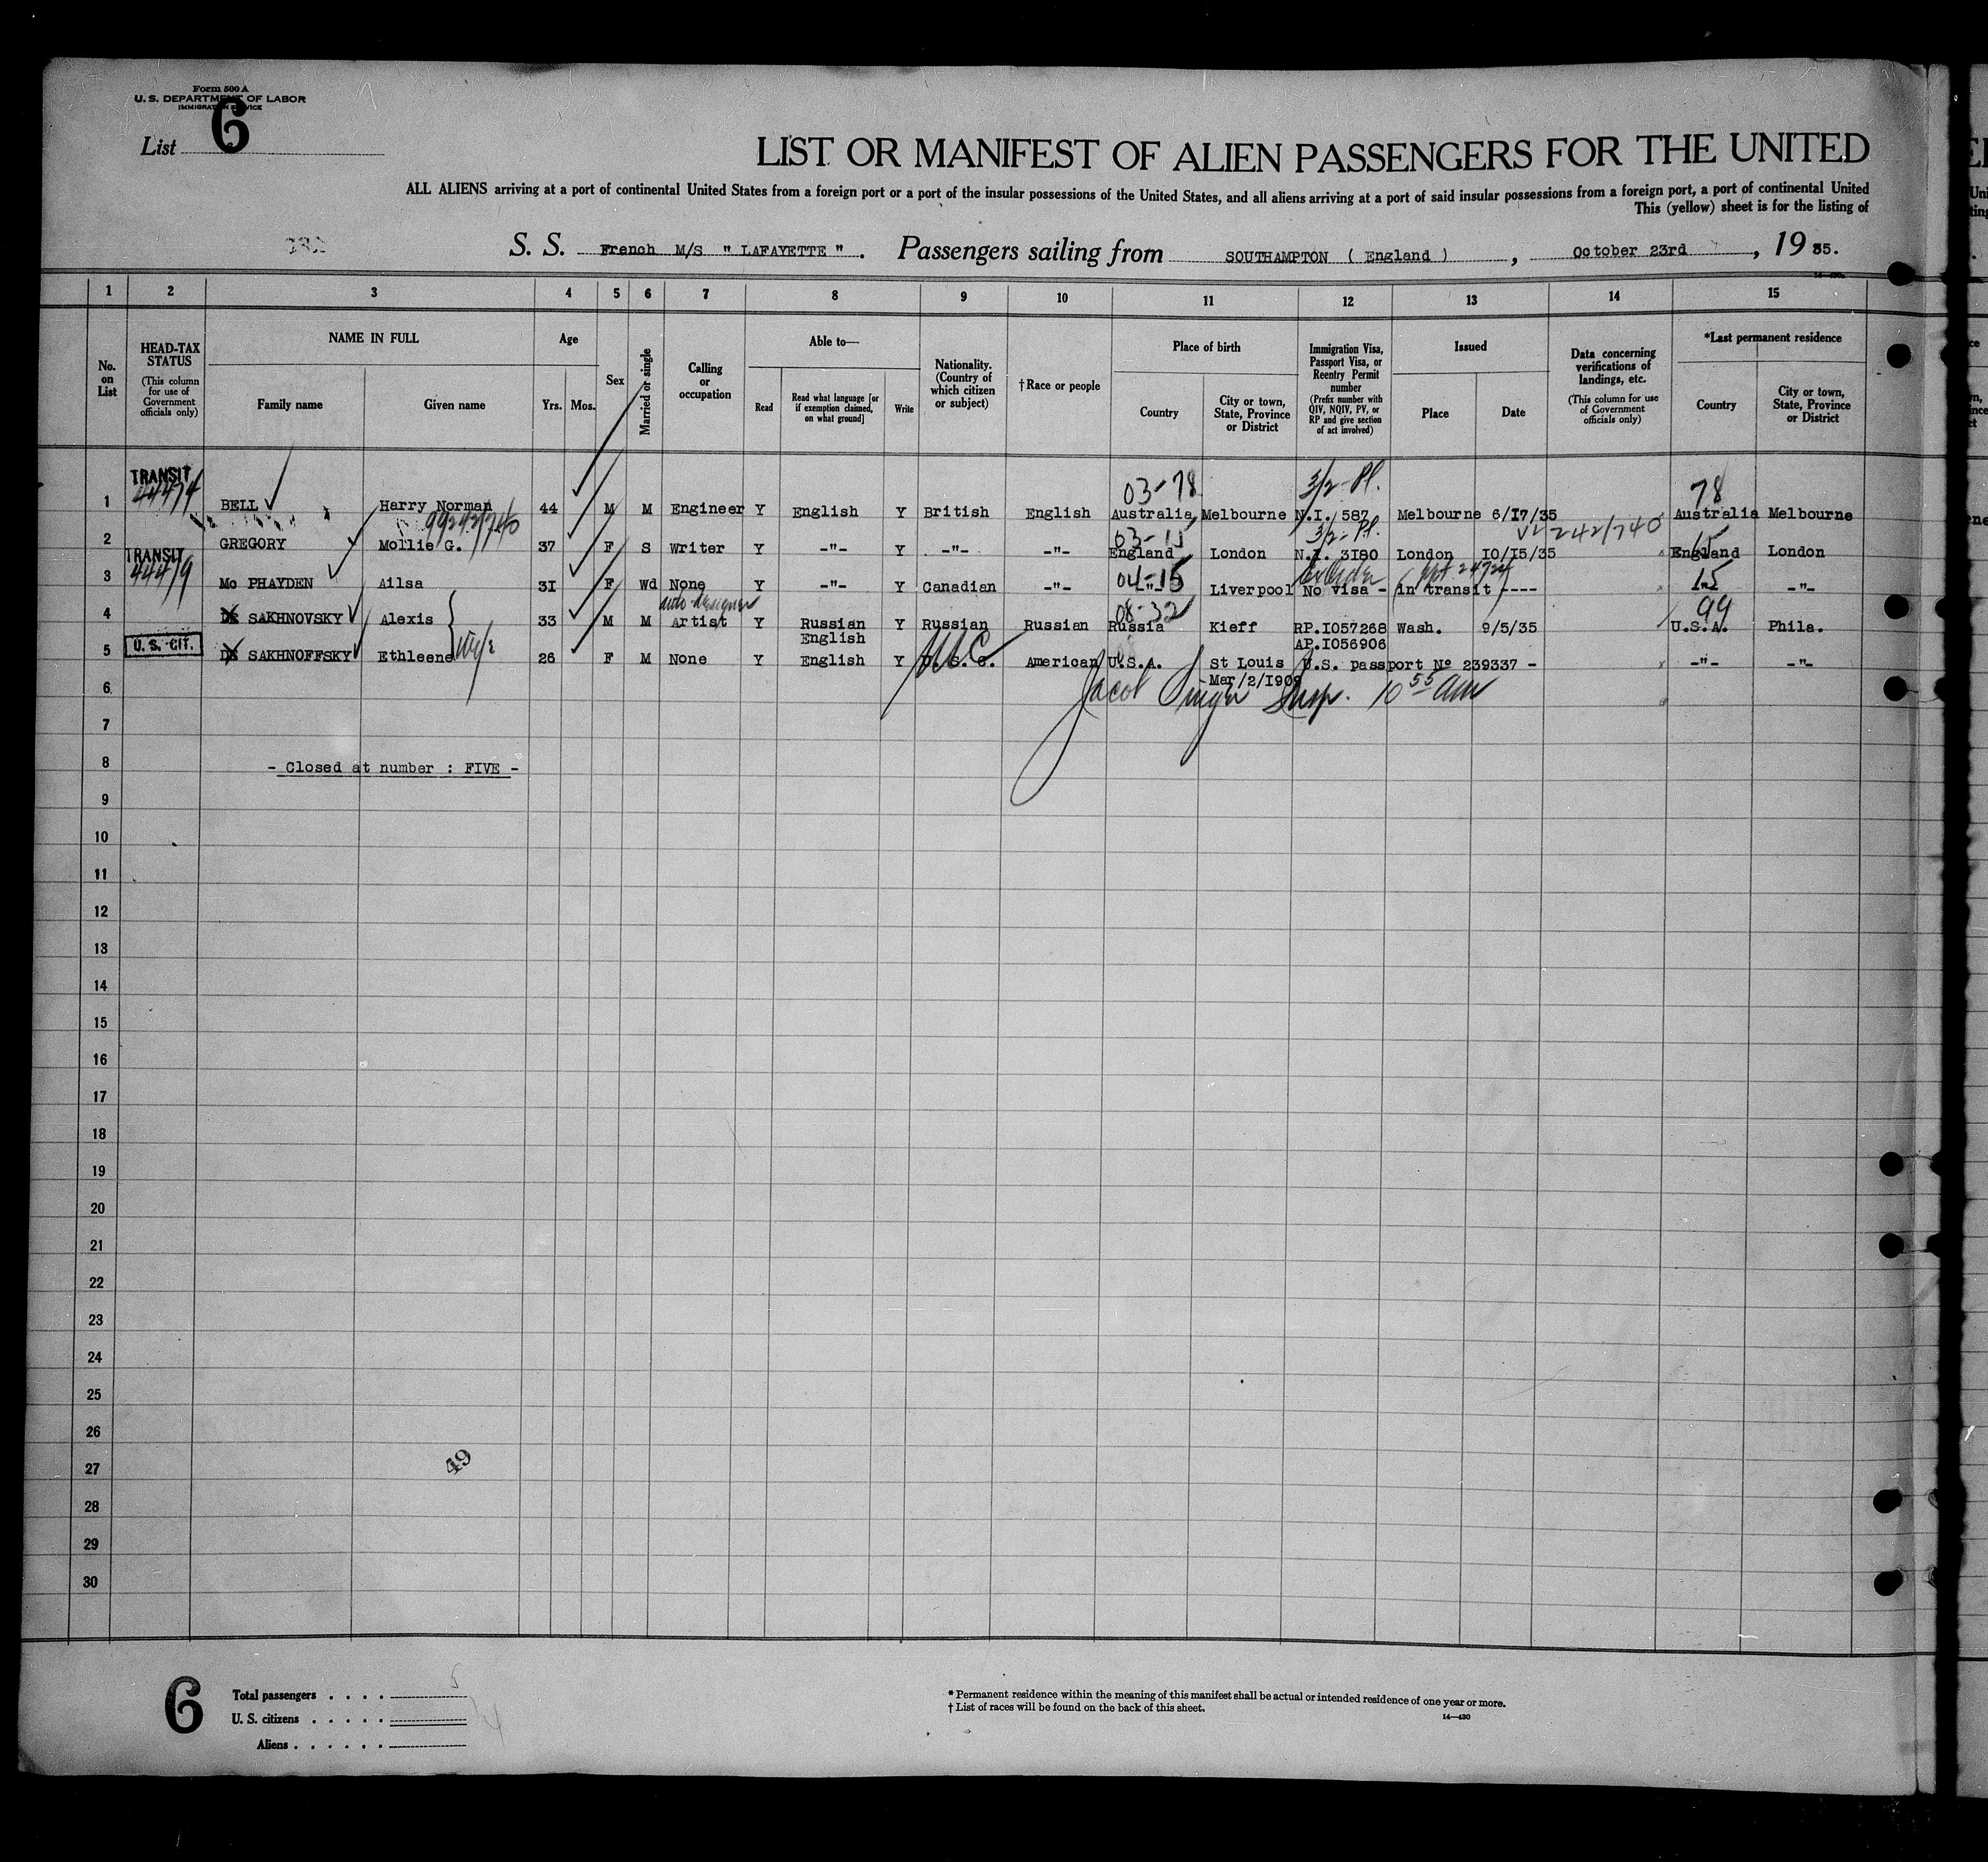 Form 500 A
U. S. DEPARTMENT OF LABOR
IMMIGRATION SERVICE
List 6
LIST OR MANIFEST OF ALIEN PASSENGERS FOR THE UNITED
ALL ALIENS arriving at a port of continental United States from a foreign port or a port of the insular possessions of the United States, and all aliens arriving at a port of said insular possessions from a foreign port, a port of continental United
This (yellow) sheet is for the listing of
S. S. French M/S " LAFAYETTE ". Passengers sailing from SOUTHAMPTON ( England ), October 23rd, 1935.
1 2 3 4 5 6 7 8 9 10 11 12 13 14 15
No. on List
HEAD-TAX STATUS (This column for use of Government officials only)
NAME IN FULL Family name Given name
Age Yrs. Mos.
Sex
Married or single
Calling or occupation
Able to— Read Read what language [or if exemption claimed, on what ground] Write
Nationality. (Country of which citizen or subject)
†Race or people
Place of birth Country City or town, State, Province or District
Immigration Visa, Passport Visa, or Reentry Permit number (Prefix number with QIV, NQIV, PV, or RP and give section of act involved)
Issued Place Date
Data concerning verifications of landings, etc. (This column for use of Government officials only)
*Last permanent residence Country City or town, State, Province or District
TRANSIT 03-78 3/2-Pl. 78
1 BELL Harry Norman 44 M M Engineer Y English Y British English Australia, Melbourne N.I. 587 Melbourne 6/17/35 Australia Melbourne
99242/740 03-15 3/2-Pl. 242/740 15
2 GREGORY Mollie G. 37 F S Writer Y -"- Y -"- -"- England London N.I. 3180 London 10/15/35 England London
TRANSIT 04-15 15
3 Mc PHAYDEN Ailsa 31 F Wd None Y -"- Y Canadian -"- -"- Liverpool No visa - in transit ---- -"- -"-
auto designer 08-32 99
4 DE SAKHNOVSKY Alexis 33 M M Artist Y Russian English Y Russian Russian Russia Kieff RP.I057268 AP.I056906 Wash. 9/5/35 U.S.A. Phila.
U. S. CIT.
5 DE SAKHNOFFSKY Ethleene Wife 26 F M None Y English Y U.S.C. American U.S.A. St Louis Mar/2/1909 U.S. passport Nº 239337 - -"- -"-
6 Jacob Singer Insp. 10 55 AM
7
8 - Closed at number : FIVE -
9
10
11
12
13
14
15
16
17
18
19
20
21
22
23
24
25
26
27
49
28
29
30
6
Total passengers . . . . 5
U. S. citizens . . . . .
Aliens . . . . . .
* Permanent residence within the meaning of this manifest shall be actual or intended residence of one year or more.
† List of races will be found on the back of this sheet.
14—430